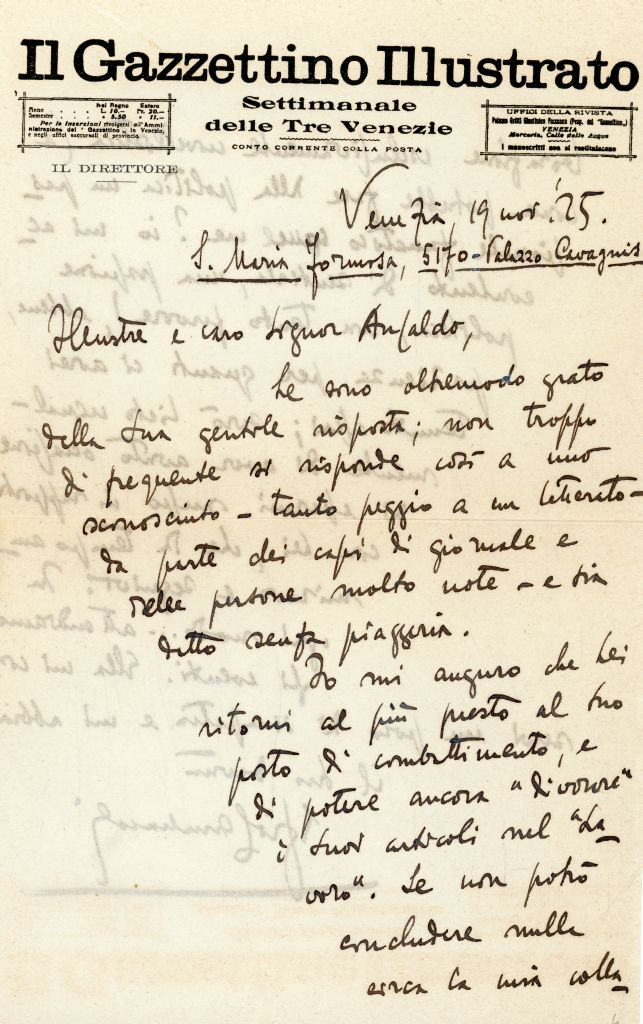 Il Gazzettino Illustrato
Settimanale
delle Tre Venezie
CONTO CORRENTE COLLA POSTA
Nel Regno Estero
Anno . . . . L. 10.— Fr. 20.—
Semestre . . . » 5.50 » 11.—
Per le inserzioni rivolgersi all'Amm-
inistrazione del "Gazzettino" in Venezia,
e negli uffici succursali di provincia
UFFICI DELLA RIVISTA
Palazzo Faccanon (Prop. del "Gazzettino")
VENEZIA
Merceria, Calle delle Acque
I manoscritti non si restituiscono
IL DIRETTORE
Venezia, 19 nov. '25.
S. Maria Formosa, 5170 - Palazzo Cavagnis
Illustre e caro Signor Ansaldo,
Le sono oltremodo grato
della Sua gentile risposta; non troppo
di frequente si risponde così a uno
sconosciuto – tanto peggio a un letterato –
da parte dei capi di giornale e
delle persone molto note – e sia
detto senza piaggeria.
Io mi auguro che Lei
ritorni al più presto al Suo
posto di combattimento, e
di potere ancora "divorare"
i Suoi articoli nel "La-
voro". Se non potrò
concludere nulla
circa la mia colla-